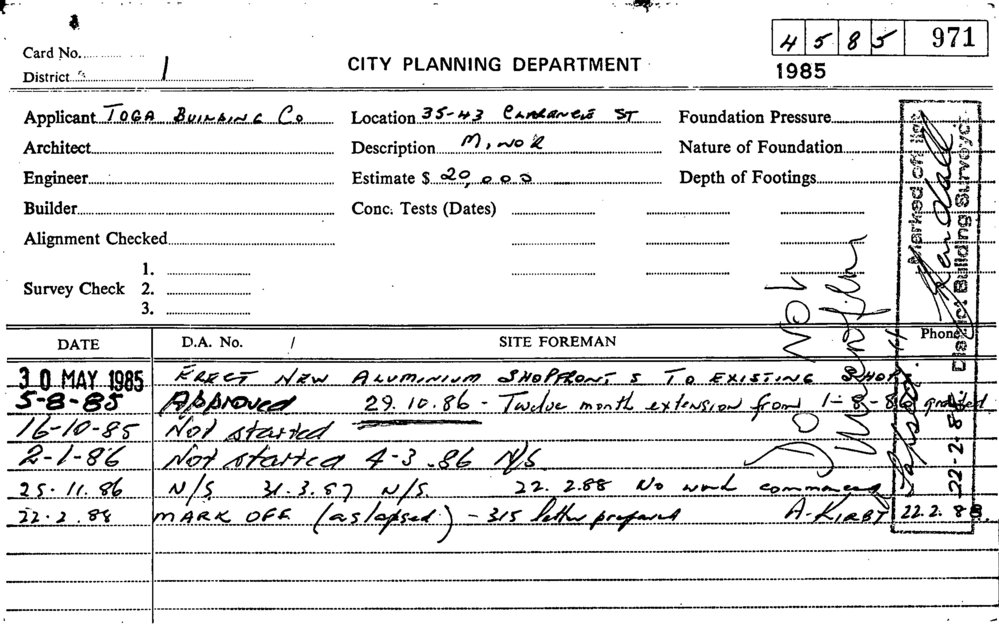 4 5 8 5 971
Card No.
CITY PLANNING DEPARTMENT
District 1
1985
Applicant TOGA BUILDING CO Location 35-43 CLARENCE ST Foundation Pressure
Architect Description MINOR Nature of Foundation
Engineer Estimate $ 20,000 Depth of Footings
Builder Conc. Tests (Dates)
Alignment Checked
1.
Survey Check 2.
3.
Do Not
Marked off list
Kendall
District Building Surveyor
22-2-88
Lapsed
Phone
DATE D.A. No. / SITE FOREMAN
30 MAY 1985 ERECT NEW ALUMINIUM SHOPFRONTS TO EXISTING SHOP
5-8-85 Approved 29.10.86 - Twelve month extension from 1-8-86 granted
16-10-85 Not started
2-1-86 Not started 4-3.86 N/S
25.11.86 N/S 31.3.87 N/S. 22.2.88 No work commenced
22.2.88 MARK OFF (as lapsed) - 315 letter prepared A. KIRBY 22.2.88.